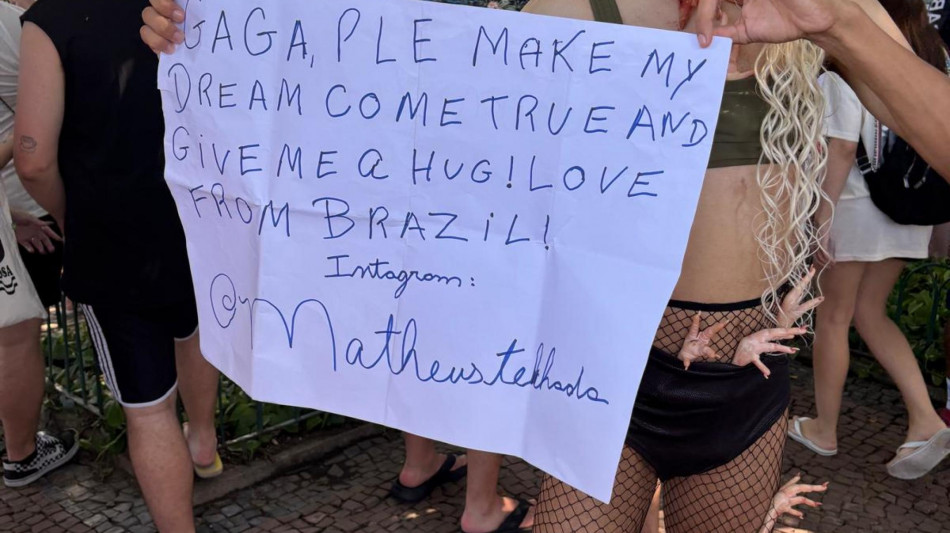 GAGA, PLE MAKE MY
DREAM COME TRUE AND
GIVE ME A HUG! LOVE
FROM BRAZIL!
Intagram: